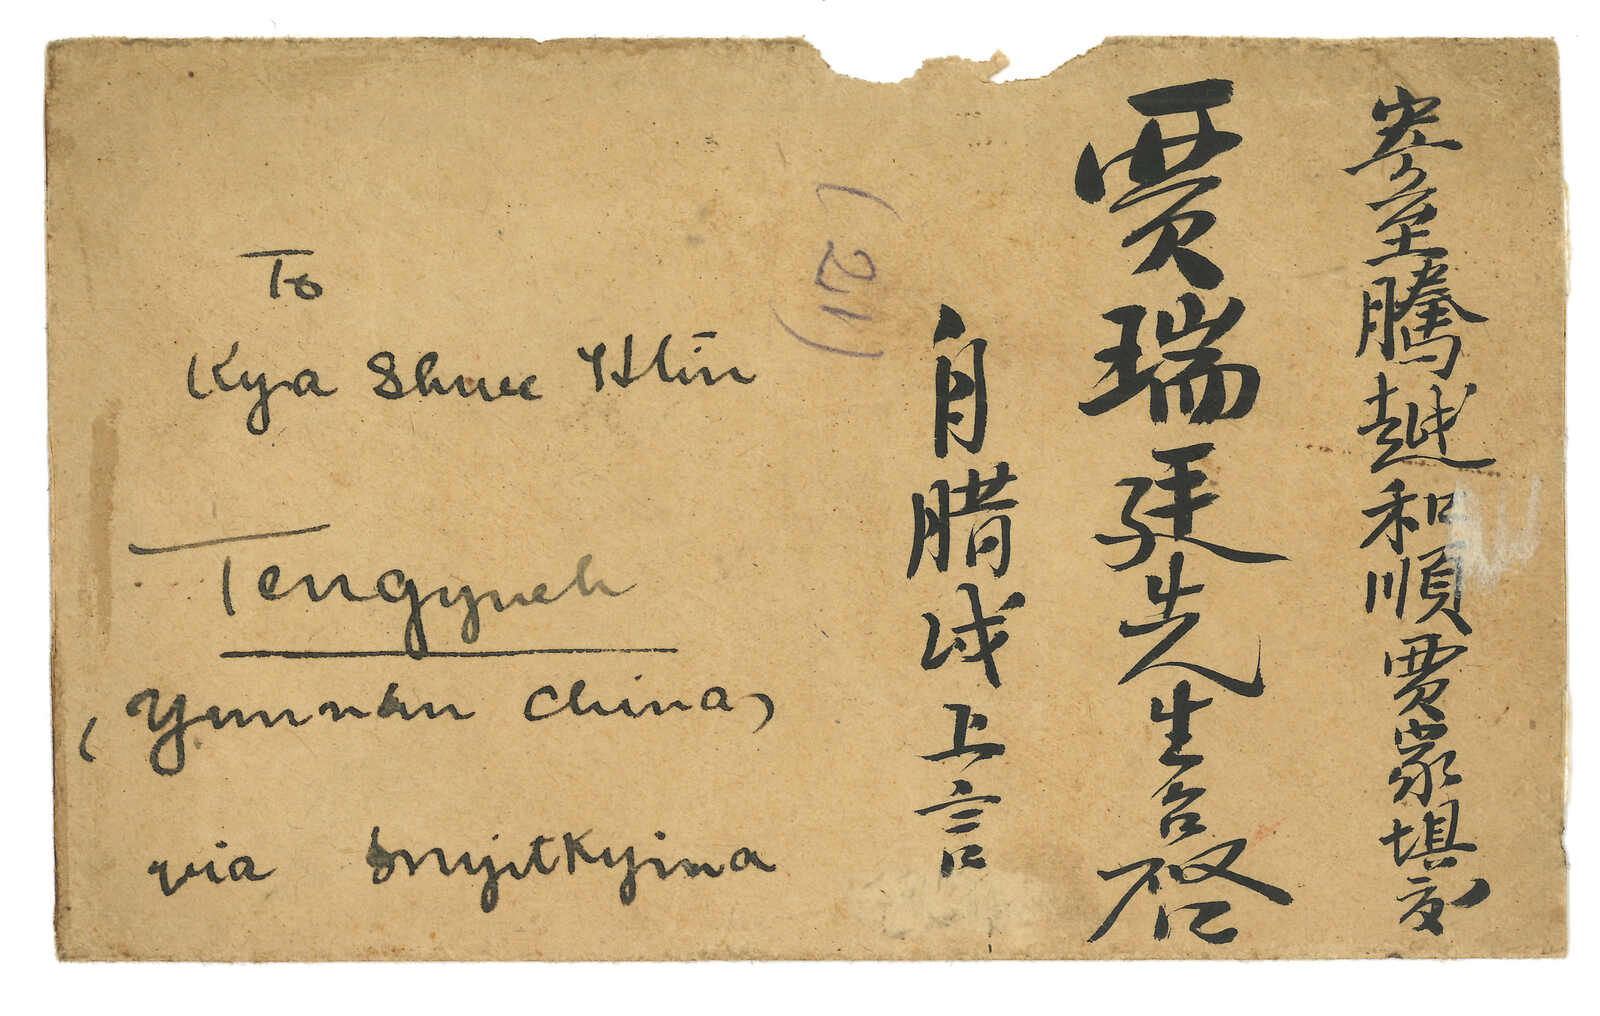 寄至騰越和順賈家垻交
賈瑞廷先生台啓
自腊戍上言
(21)
To
Kya Shwee Htin
Tengyueh
(Yunnan China)
via Myitkyina